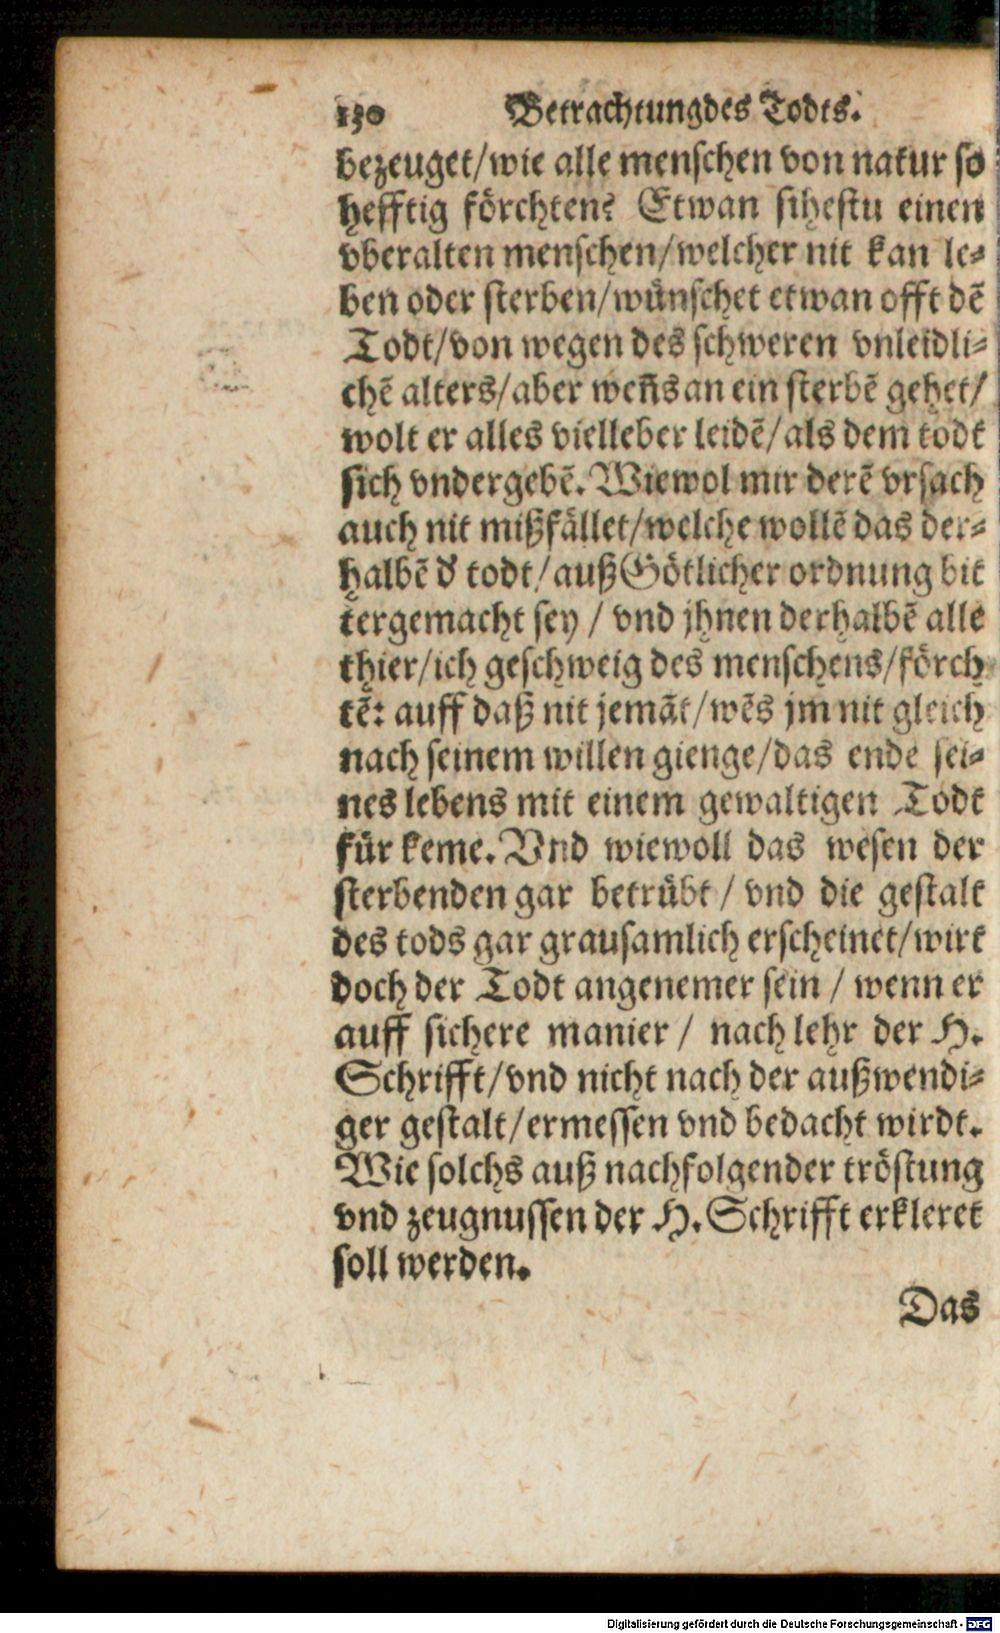 130 Betrachtung des Todts.
bezeuget/wie alle menschen von natur so
hefftig förchten? Etwan sihestu einen
vberalten menschen/welcher nit kan le⸗
ben oder sterben/wünschet etwan offt dē
Todt/von wegen des schweren vnleidli⸗
chē alters/aber weñs an ein sterbē gehet/
wolt er alles vielleber leidē/als dem todt
sich vndergebē. Wiewol mir derē vrsach
auch nit mißfället/welche wollē das der⸗
halbē d' todt/auß Götlicher ordnung bit
ter gemacht sey/vnd jhnen derhalbē alle
thier/ich geschweig des menschens/förch
tē: auff daß nit jemāt/wēs jm nit gleich
nach seinem willen gienge/das ende sei⸗
nes lebens mit einem gewaltigen Todt
für keme. Vnd wiewoll das wesen der
sterbenden gar betrübt/vnd die gestalt
des tods gar grausamlich erscheinet/wirt
doch der Todt angenemer sein/wenn er
auff sichere manier/nach lehr der H.
Schrifft/vnd nicht nach der außwendi⸗
ger gestalt/ermessen vnd bedacht wirdt.
Wie solchs auß nachfolgender tröstung
vnd zeugnussen der H. Schrifft erkleret
soll werden.
Das
Digitalisierung gefördert durch die Deutsche Forschungsgemeinschaft - DFG